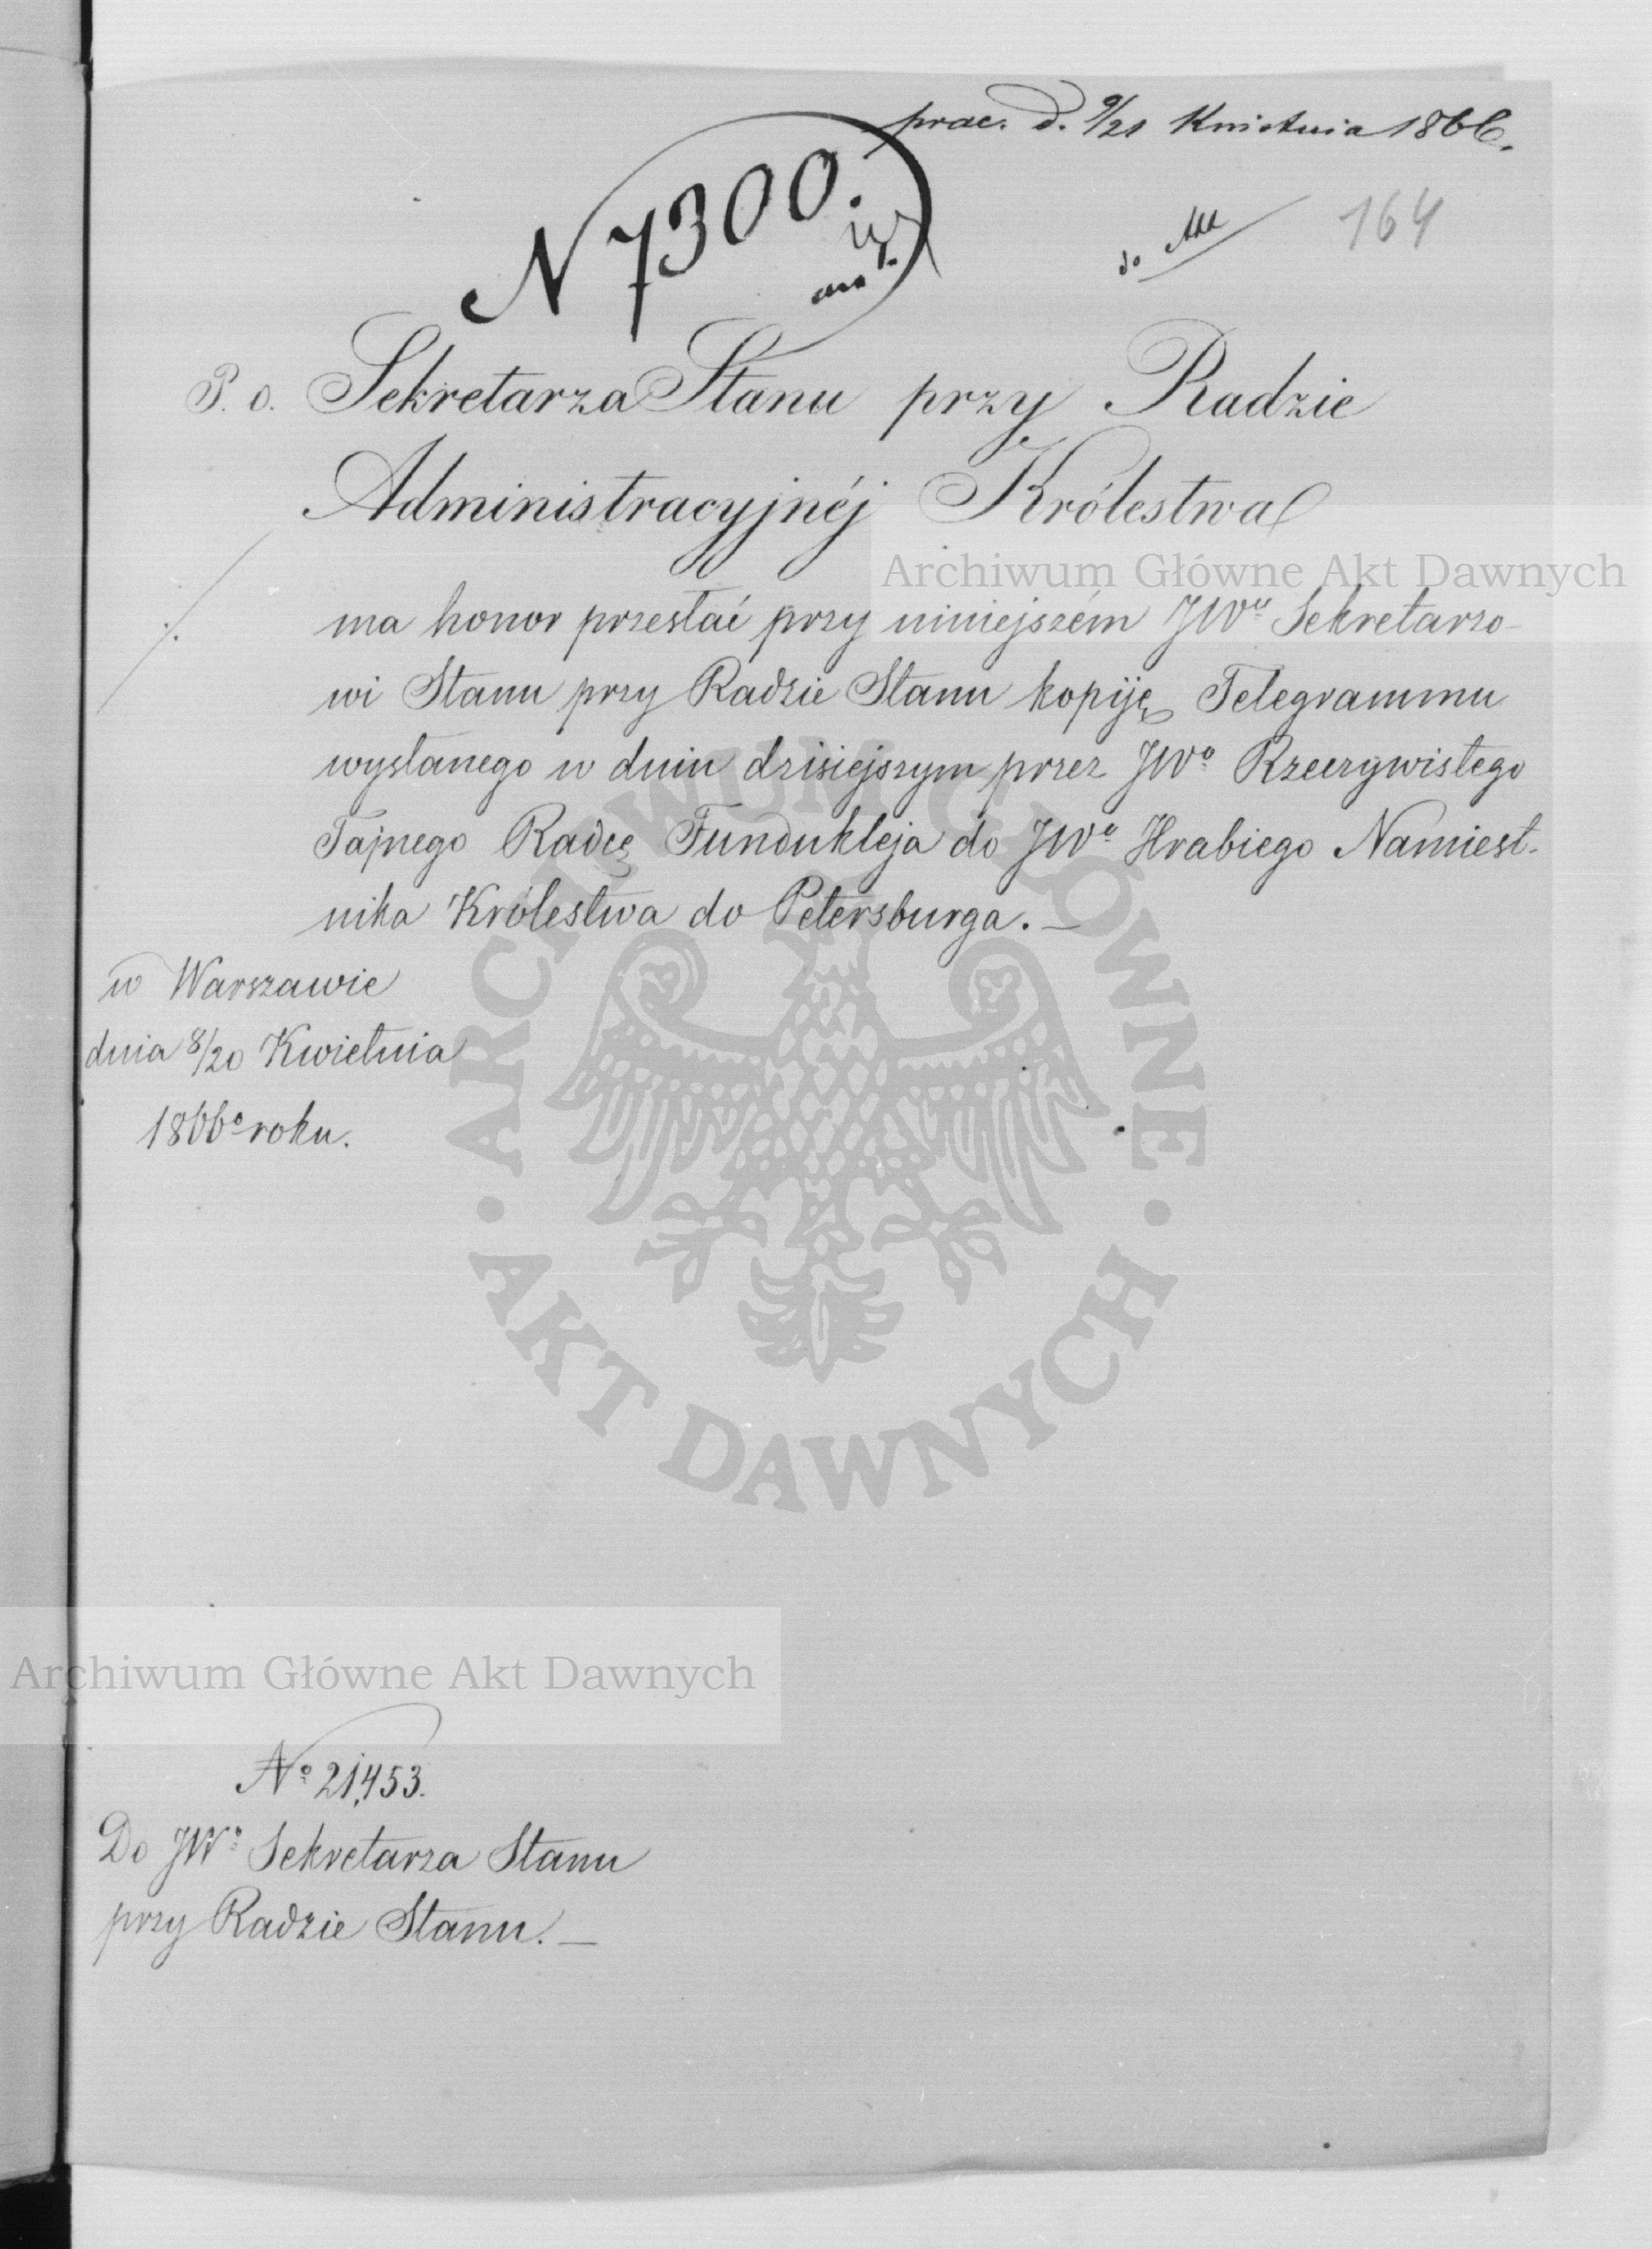 d. 9/21 Kwietnia 1866.
N 7300.
do Akt
164
P. o. Sekretarza Stanu przy Radzie
Administracyjnéj Królestwa
Archiwum Główne Akt Dawnych
ma honor przesłać przy niniejszém JWu Sekretarzo-
wi Stanu przy Radzie Stanu kopiję Telegrammu
wysłanego w dniu dzisiejszym przez JWo Rzeczywistego
Tajnego Radcę Fundukleja do JWo Hrabiego Namiest-
nika Królestwa do Petersburga. —
w Warszawie
dnia 8/20 Kwietnia
1866o roku.
ARCHIWUM GŁÓWNE · AKT DAWNYCH ·
Archiwum Główne Akt Dawnych
No 21,453.
Do JWo Sekretarza Stanu
przy Radzie Stanu. —